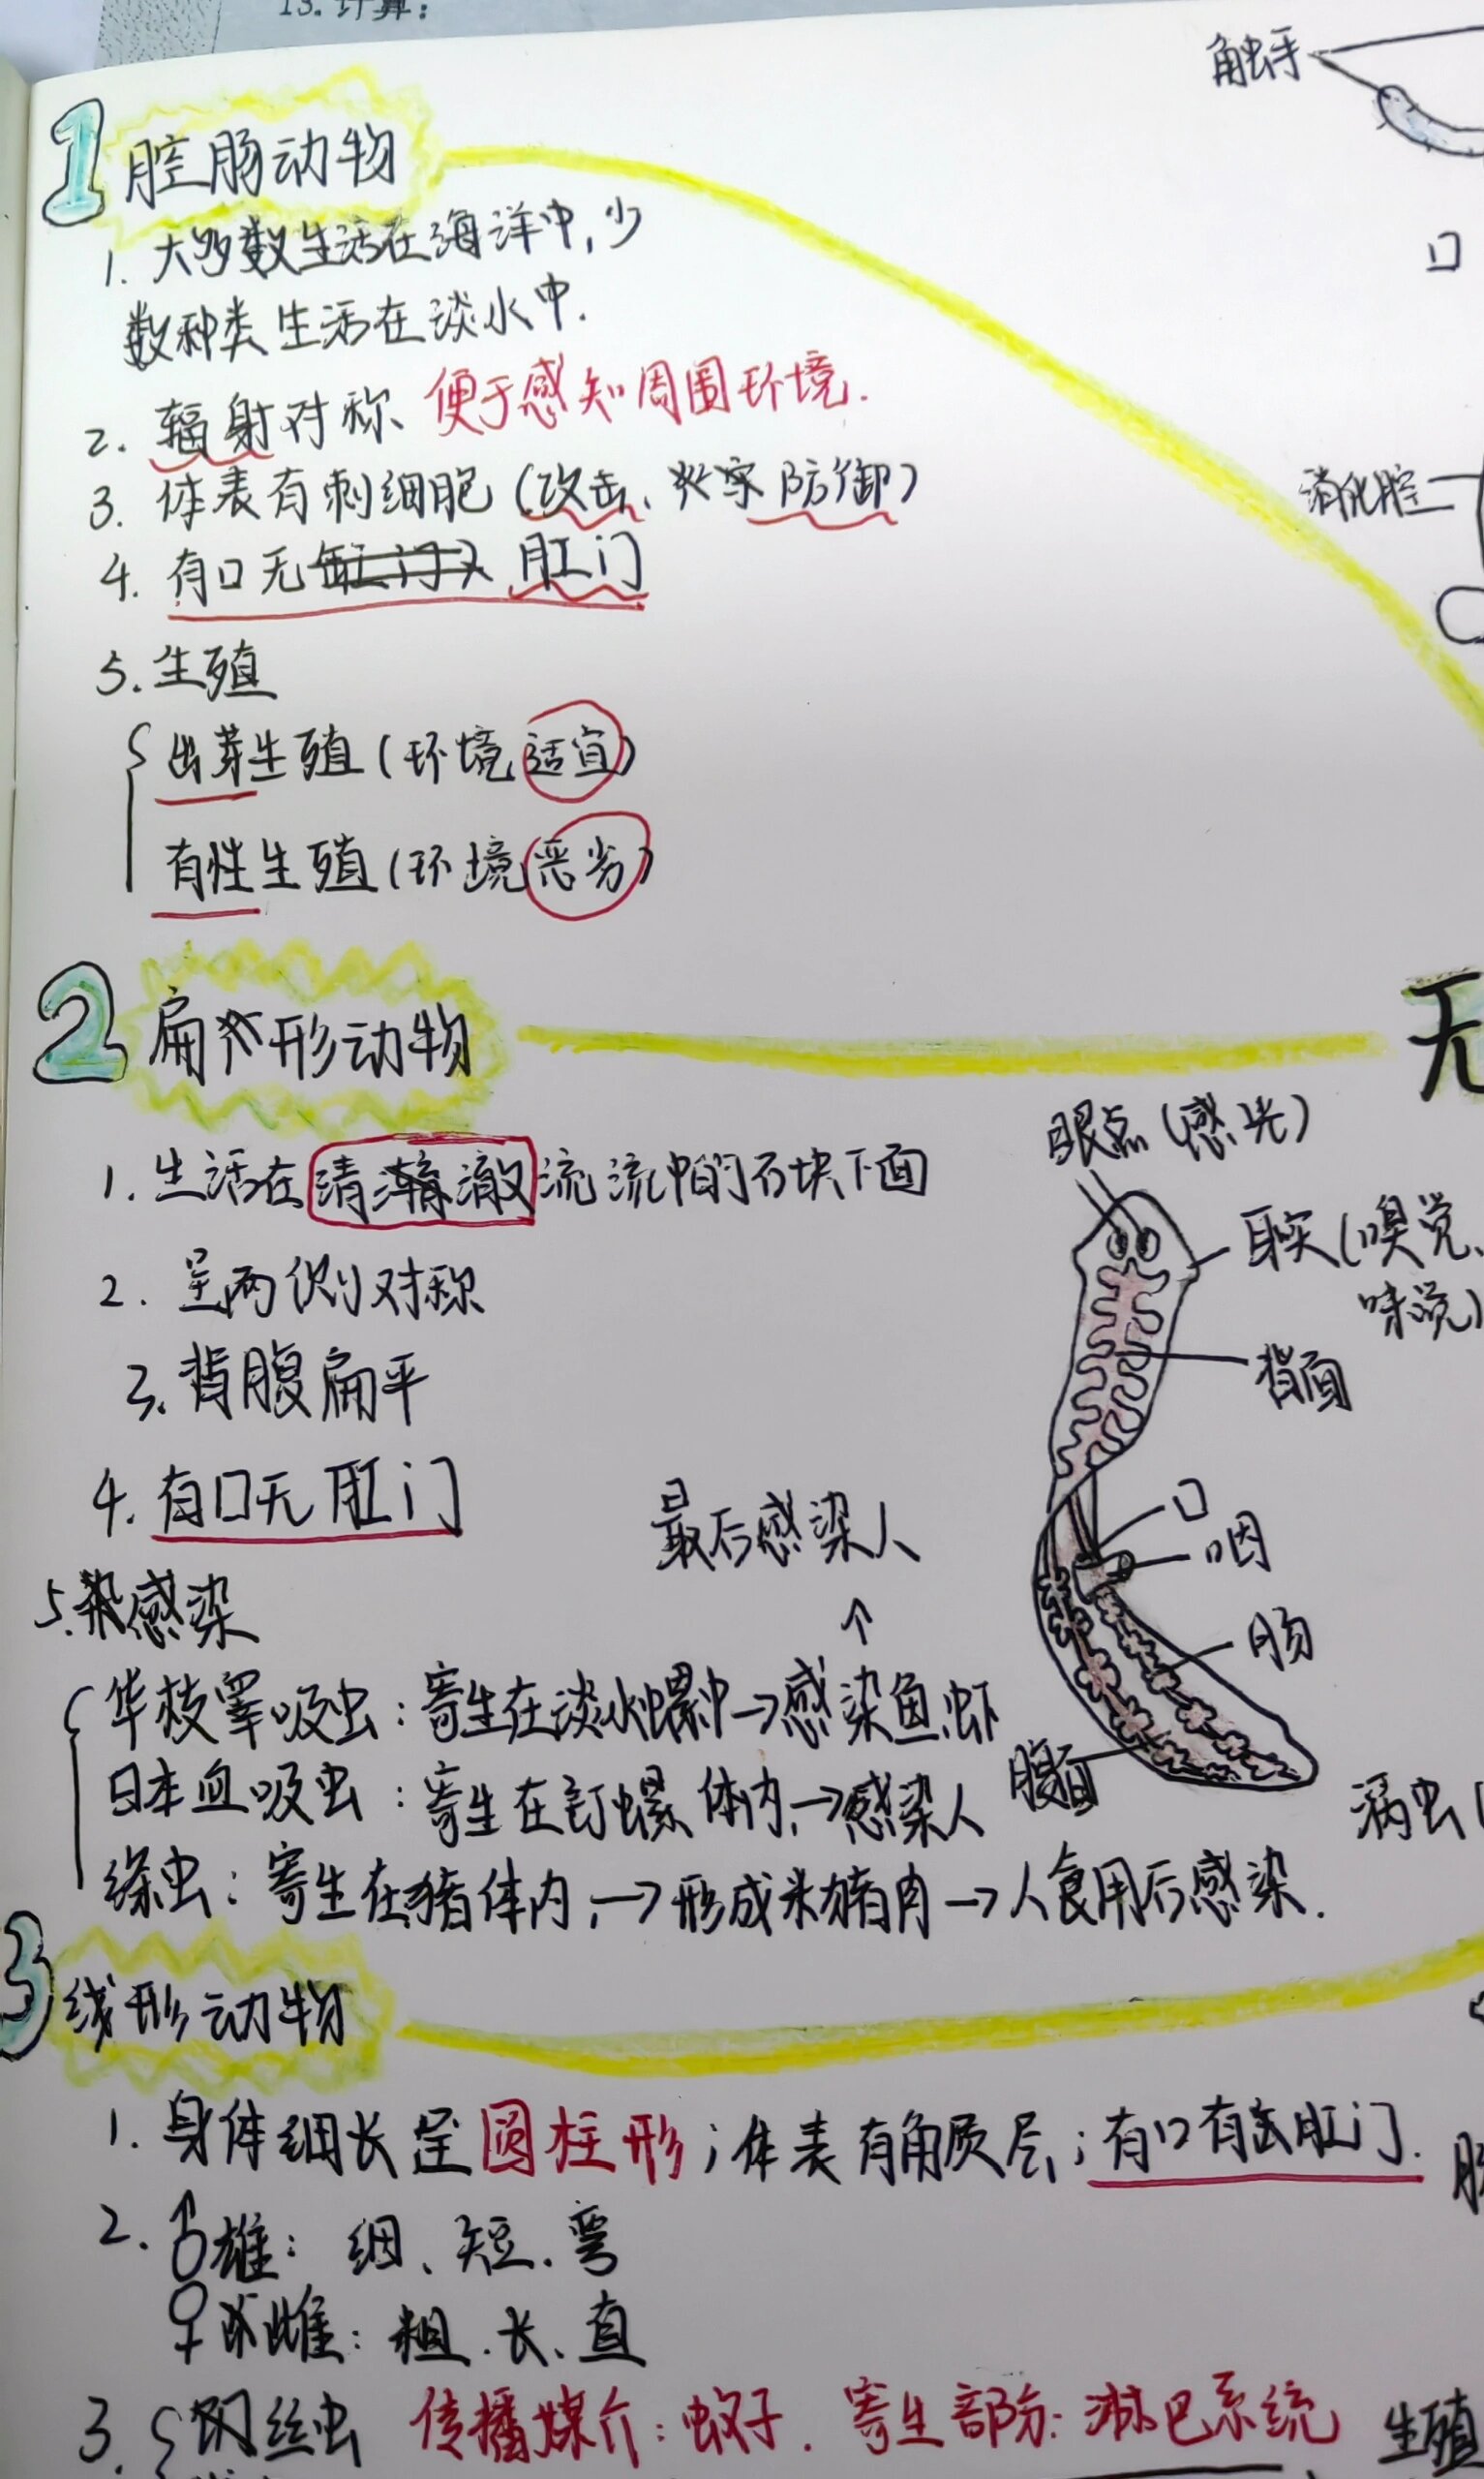 13. 计算：
触手
1 腔肠动物
1. 大多数生活在海洋中,少
数种类生活在淡水中.
口
2. 辐射对称 便于感知周围环境.
3. 体表有刺细胞(攻击、防御)
消化腔
4. 有口无肛门
5. 生殖
出芽生殖(环境适宜)
有性生殖(环境恶劣)
2 扁形动物
无
眼点(感光)
1. 生活在清澈流中的石块下面
耳突(嗅觉、
味觉)
2. 呈两侧对称
3. 背腹扁平
背面
4. 有口无肛门
最后感染人
↑
口
咽
5. 感染
肠
华枝睾吸虫：寄生在淡水螺中→感染鱼虾
腹面
日本血吸虫：寄生在钉螺体内,→感染人
涡虫(
绦虫：寄生在猪体内,→形成米猪肉→人食用后感染.
3 线形动物
1. 身体细长呈圆柱形;体表有角质层;有口有肛门.
2. ♂雄：细、短、弯
♀雌：粗、长、直
3. 丝虫 传播媒介：蚊子. 寄生部分：淋巴系统
生殖